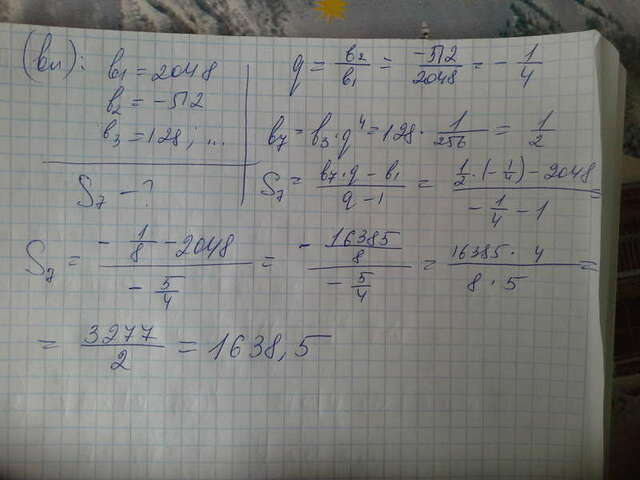 (bn): b1 = 2048 q = b2/b1 = -512/2048 = -1/4
b2 = -512
b3 = 128; ... b7 = b3·q^4 = 128 · 1/256 = 1/2
S7 - ? S7 = (b7·q - b1)/(q - 1) = (1/2·(-1/4) - 2048)/(-1/4 - 1) =
S7 = (-1/8 - 2048)/(-5/4) = (-16385/8)/(-5/4) = (16385 · 4)/(8 · 5) =
= 3277/2 = 1638,5